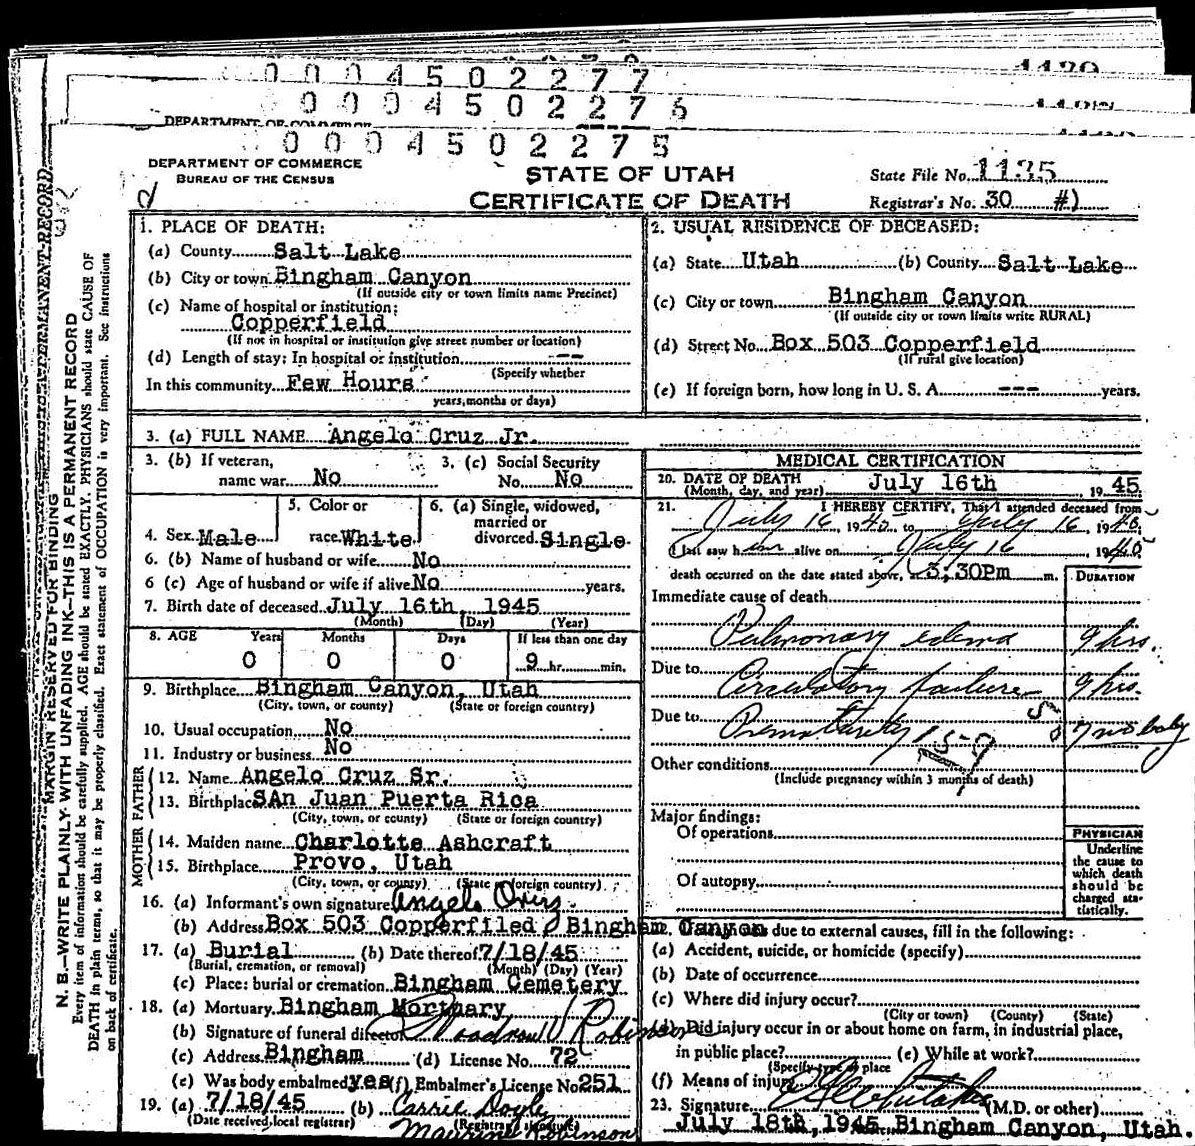 1120
0 0 0 4 5 0 2 2 7 7
0 0 0 4 5 0 2 2 7 6
DEPARTMENT OF COMMERCE
0 0 0 4 5 0 2 2 7 5
DEPARTMENT OF COMMERCE
BUREAU OF THE CENSUS
STATE OF UTAH
CERTIFICATE OF DEATH
State File No. 1135
Registrar's No. 30 #)
MARGIN RESERVED FOR BINDING
N. B.—WRITE PLAINLY WITH UNFADING INK—THIS IS A PERMANENT RECORD
Every item of information should be carefully supplied. AGE should be stated EXACTLY. PHYSICIANS should state CAUSE OF
DEATH in plain terms, so that it may be properly classified. Exact statement of OCCUPATION is very important. See instructions
on back of certificate.
1. PLACE OF DEATH:
(a) County Salt Lake
(b) City or town Bingham Canyon
(If outside city or town limits name Precinct)
(c) Name of hospital or institution:
Copperfield
(If not in hospital or institution give street number or location)
(d) Length of stay: In hospital or institution ---
(Specify whether
In this community Few Hours
years, months or days)
2. USUAL RESIDENCE OF DECEASED:
(a) State Utah (b) County Salt Lake
(c) City or town Bingham Canyon
(If outside city or town limits write RURAL)
(d) Street No. Box 503 Copperfield
(If rural give location)
(e) If foreign born, how long in U. S. A. --- years.
3. (a) FULL NAME Angelo Cruz Jr.
3. (b) If veteran, name war No
3. (c) Social Security No. No
4. Sex Male
5. Color or race White
6. (a) Single, widowed, married or divorced Single
6. (b) Name of husband or wife No
6 (c) Age of husband or wife if alive No years.
7. Birth date of deceased July 16th, 1945
(Month) (Day) (Year)
8. AGE Years Months Days If less than one day
0 0 0 9 hr. min.
9. Birthplace Bingham Canyon, Utah
(City, town, or county) (State or foreign country)
10. Usual occupation No
11. Industry or business No
FATHER
12. Name Angelo Cruz Sr.
13. Birthplace SAn Juan Puerta Rica
(City, town, or county) (State or foreign country)
MOTHER
14. Maiden name Charlotte Ashcraft
15. Birthplace Provo, Utah
(City, town, or county) (State or foreign country)
16. (a) Informant's own signature Angelo Cruz
(b) Address Box 503 Copperfiled, Bingham Canyon
17. (a) Burial (b) Date thereof 7/18/45
(Burial, cremation, or removal) (Month) (Day) (Year)
(c) Place: burial or cremation Bingham Cemetery
18. (a) Mortuary Bingham Mortuary
(b) Signature of funeral director Woodrow V Robinson
(c) Address Bingham (d) License No. 72
(e) Was body embalmed yes (f) Embalmer's License No. 251
19. (a) 7/18/45 (b) Carrie Doyle
(Date received local registrar) (Registrar's signature)
Maurine Robinson
MEDICAL CERTIFICATION
20. DATE OF DEATH July 16th, 1945
(Month, day, and year)
21. I HEREBY CERTIFY, That I attended deceased from
July 16, 1945, to July 16, 1945;
I last saw him alive on July 16, 1945
death occurred on the date stated above, 3:30Pm m.
DURATION
Immediate cause of death
Pulmonary edema 9 hrs.
Due to Circulatory failure 9 hrs.
Due to Prematurity 7 mo baby
159
Other conditions
(Include pregnancy within 3 months of death)
Major findings:
Of operations
Of autopsy
PHYSICIAN
Underline
the cause to
which death
should be
charged sta-
tistically.
due to external causes, fill in the following:
(a) Accident, suicide, or homicide (specify)
(b) Date of occurrence
(c) Where did injury occur?
(City or town) (County) (State)
(d) Did injury occur in or about home on farm, in industrial place,
in public place? (e) While at work?
(Specify type of place
(f) Means of injury
23. Signature (M.D. or other)
July 18th, 1945 Bingham Canyon, Utah.